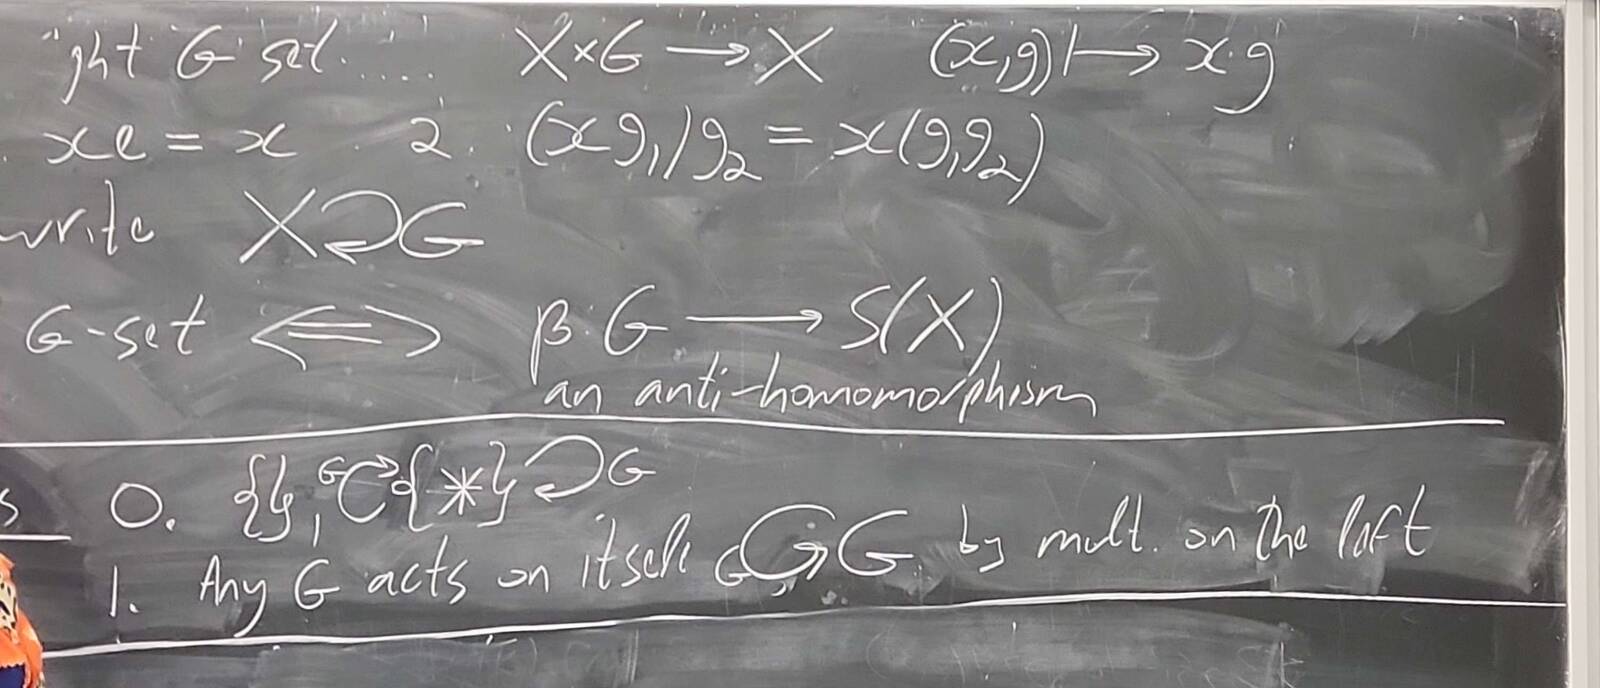 ght G set..... X×G ⟶ X (x,g) ⟼ x·g
. xe = x . 2. (xg₁)g₂ = x(g₁g₂)
write X⤸G
G-set ⟺ β:G ⟶ S(X)
an anti-homomorphism
s 0. {}, G⤵{*}⤸G
1. Any G acts on itself G⤵G by mult. on the left